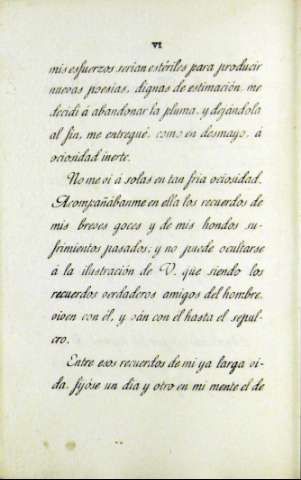 VI
mis esfuerzos serian estériles para producir
nuevas poesias, dignas de estimación, me
decidi á abandonar la pluma, y dejándola
al fin, me entregué, como en desmayo, á
ociosidad inerte.
No me vi á solas en tan fria ociosidad.
Acompañábanme en ella los recuerdos de
mis breves goces y de mis hondos su-
frimientos pasados; y no puede ocultarse
á la ilustración de V. que siendo los
recuerdos verdaderos amigos del hombre,
viven con él, y ván con el hasta el sepul-
cro.
Entre esos recuerdos de mi ya larga vi-
da, fijóse un dia y otro en mi mente el de